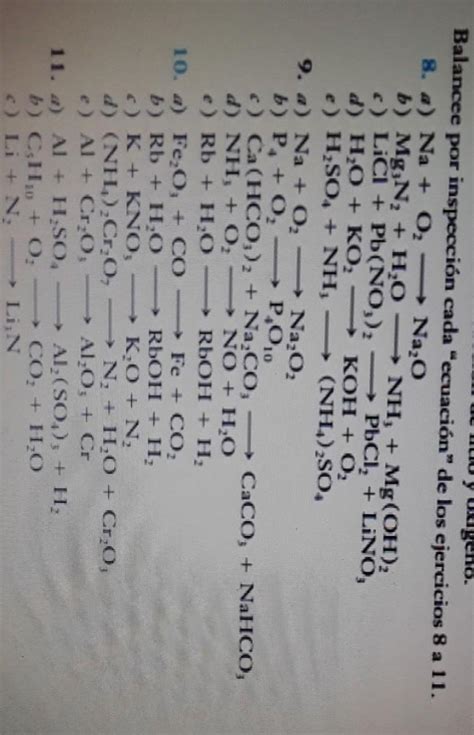 y oxígeno.
Balancee por inspección cada “ecuación” de los ejercicios 8 a 11.
8. a) Na + O₂ ⟶ Na₂O
b) Mg₃N₂ + H₂O ⟶ NH₃ + Mg(OH)₂
c) LiCl + Pb(NO₃)₂ ⟶ PbCl₂ + LiNO₃
d) H₂O + KO₂ ⟶ KOH + O₂
e) H₂SO₄ + NH₃ ⟶ (NH₄)₂SO₄
9. a) Na + O₂ ⟶ Na₂O₂
b) P₄ + O₂ ⟶ P₄O₁₀
c) Ca(HCO₃)₂ + Na₂CO₃ ⟶ CaCO₃ + NaHCO₃
d) NH₃ + O₂ ⟶ NO + H₂O
e) Rb + H₂O ⟶ RbOH + H₂
10. a) Fe₂O₃ + CO ⟶ Fe + CO₂
b) Rb + H₂O ⟶ RbOH + H₂
c) K + KNO₃ ⟶ K₂O + N₂
d) (NH₄)₂Cr₂O₇ ⟶ N₂ + H₂O + Cr₂O₃
e) Al + Cr₂O₃ ⟶ Al₂O₃ + Cr
11. a) Al + H₂SO₄ ⟶ Al₂(SO₄)₃ + H₂
b) C₅H₁₀ + O₂ ⟶ CO₂ + H₂O
c) Li + N₂ ⟶ Li₃N